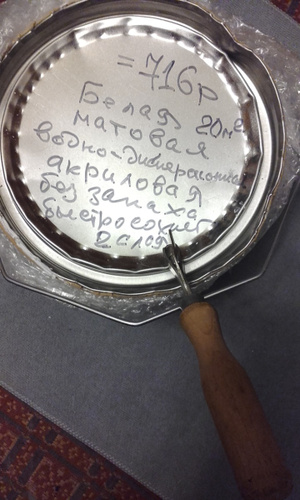 =716р
Белая 20м²
матовая
водно-дисперсионная
акриловая
без запаха
быстросохнет